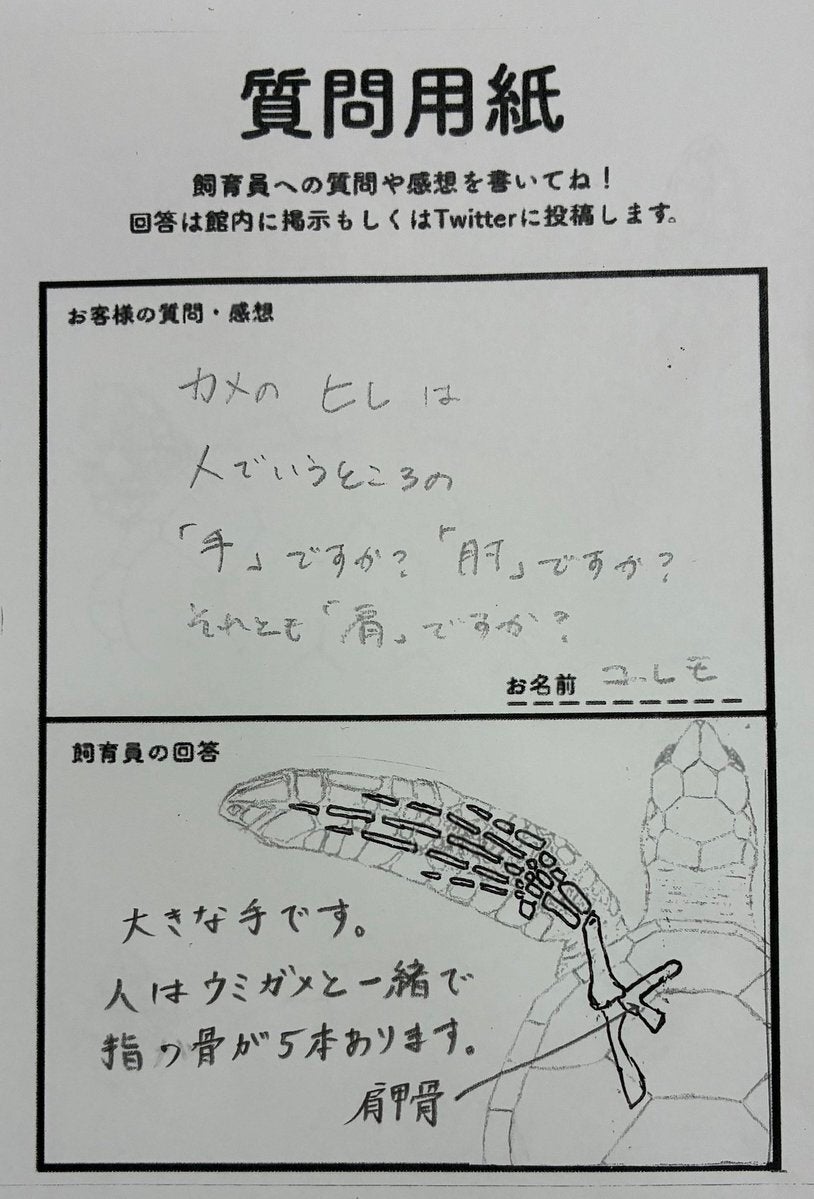 質問用紙
飼育員への質問や感想を書いてね！
回答は館内に掲示もしくはTwitterに投稿します。
お客様の質問・感想
カメの ヒレ は
人でいうところの
「手」ですか？「肘」ですか？
それとも「肩」ですか？
お名前 コレモ
飼育員の回答
大きな手です。
人はウミガメと一緒で
指の骨が5本あります。
肩甲骨